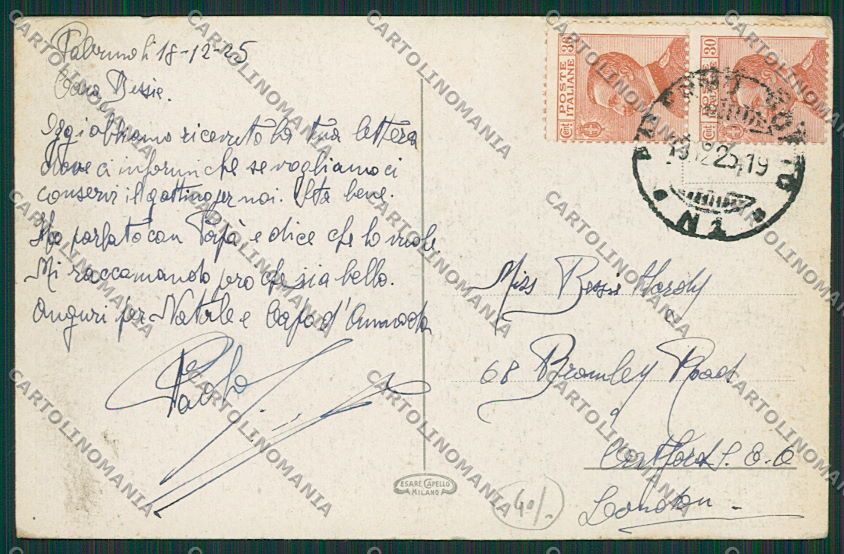 Palermo lì 18-12-25
Cara Bessie.
Oggi abbiamo ricevuto la tua lettera
dove ci informi che se vogliamo ci
conservi il gattino per noi. Sta bene.
Ho parlato con Papà e dice che lo vuole
Mi raccomando però che sia bello.
Auguri per Natale e Capo d'Annata
Paolo
POSTE ITALIANE
Cent 30
POSTE ITALIANE
Cent 30
19.12.25.19
Miss Bessie Hardy
68 Bromley Road
Catford S. E. 6
London
CESARE CAPELLO
MILANO
40/.
CARTOLINOMANIA